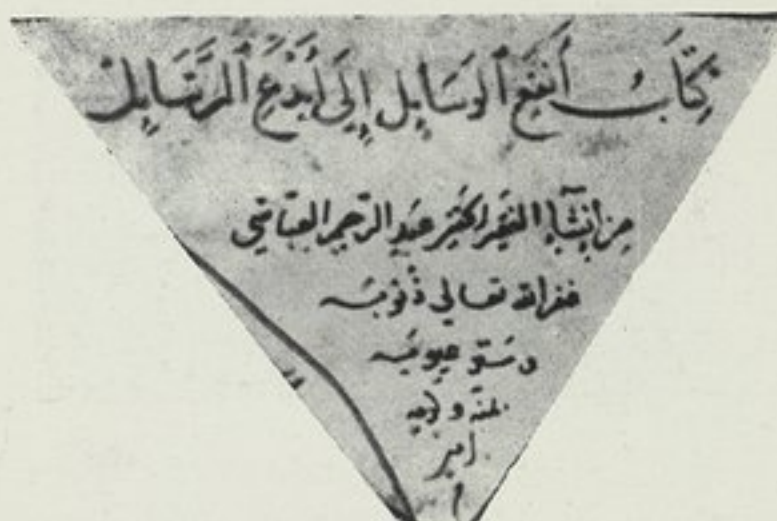 كِتَابُ أَنفَعِ ٱلوَسَايِل إِلَى أَبْدَعِ ٱلرَّسَايِلْ
مِن إنشَاءِ الفقير الحقير عَبدِ الرّحيم العبّاسي
غفر الله تعالى ذُنُوبَه
وسَتر عيوبَه
بمَنّه وكرمه
امين